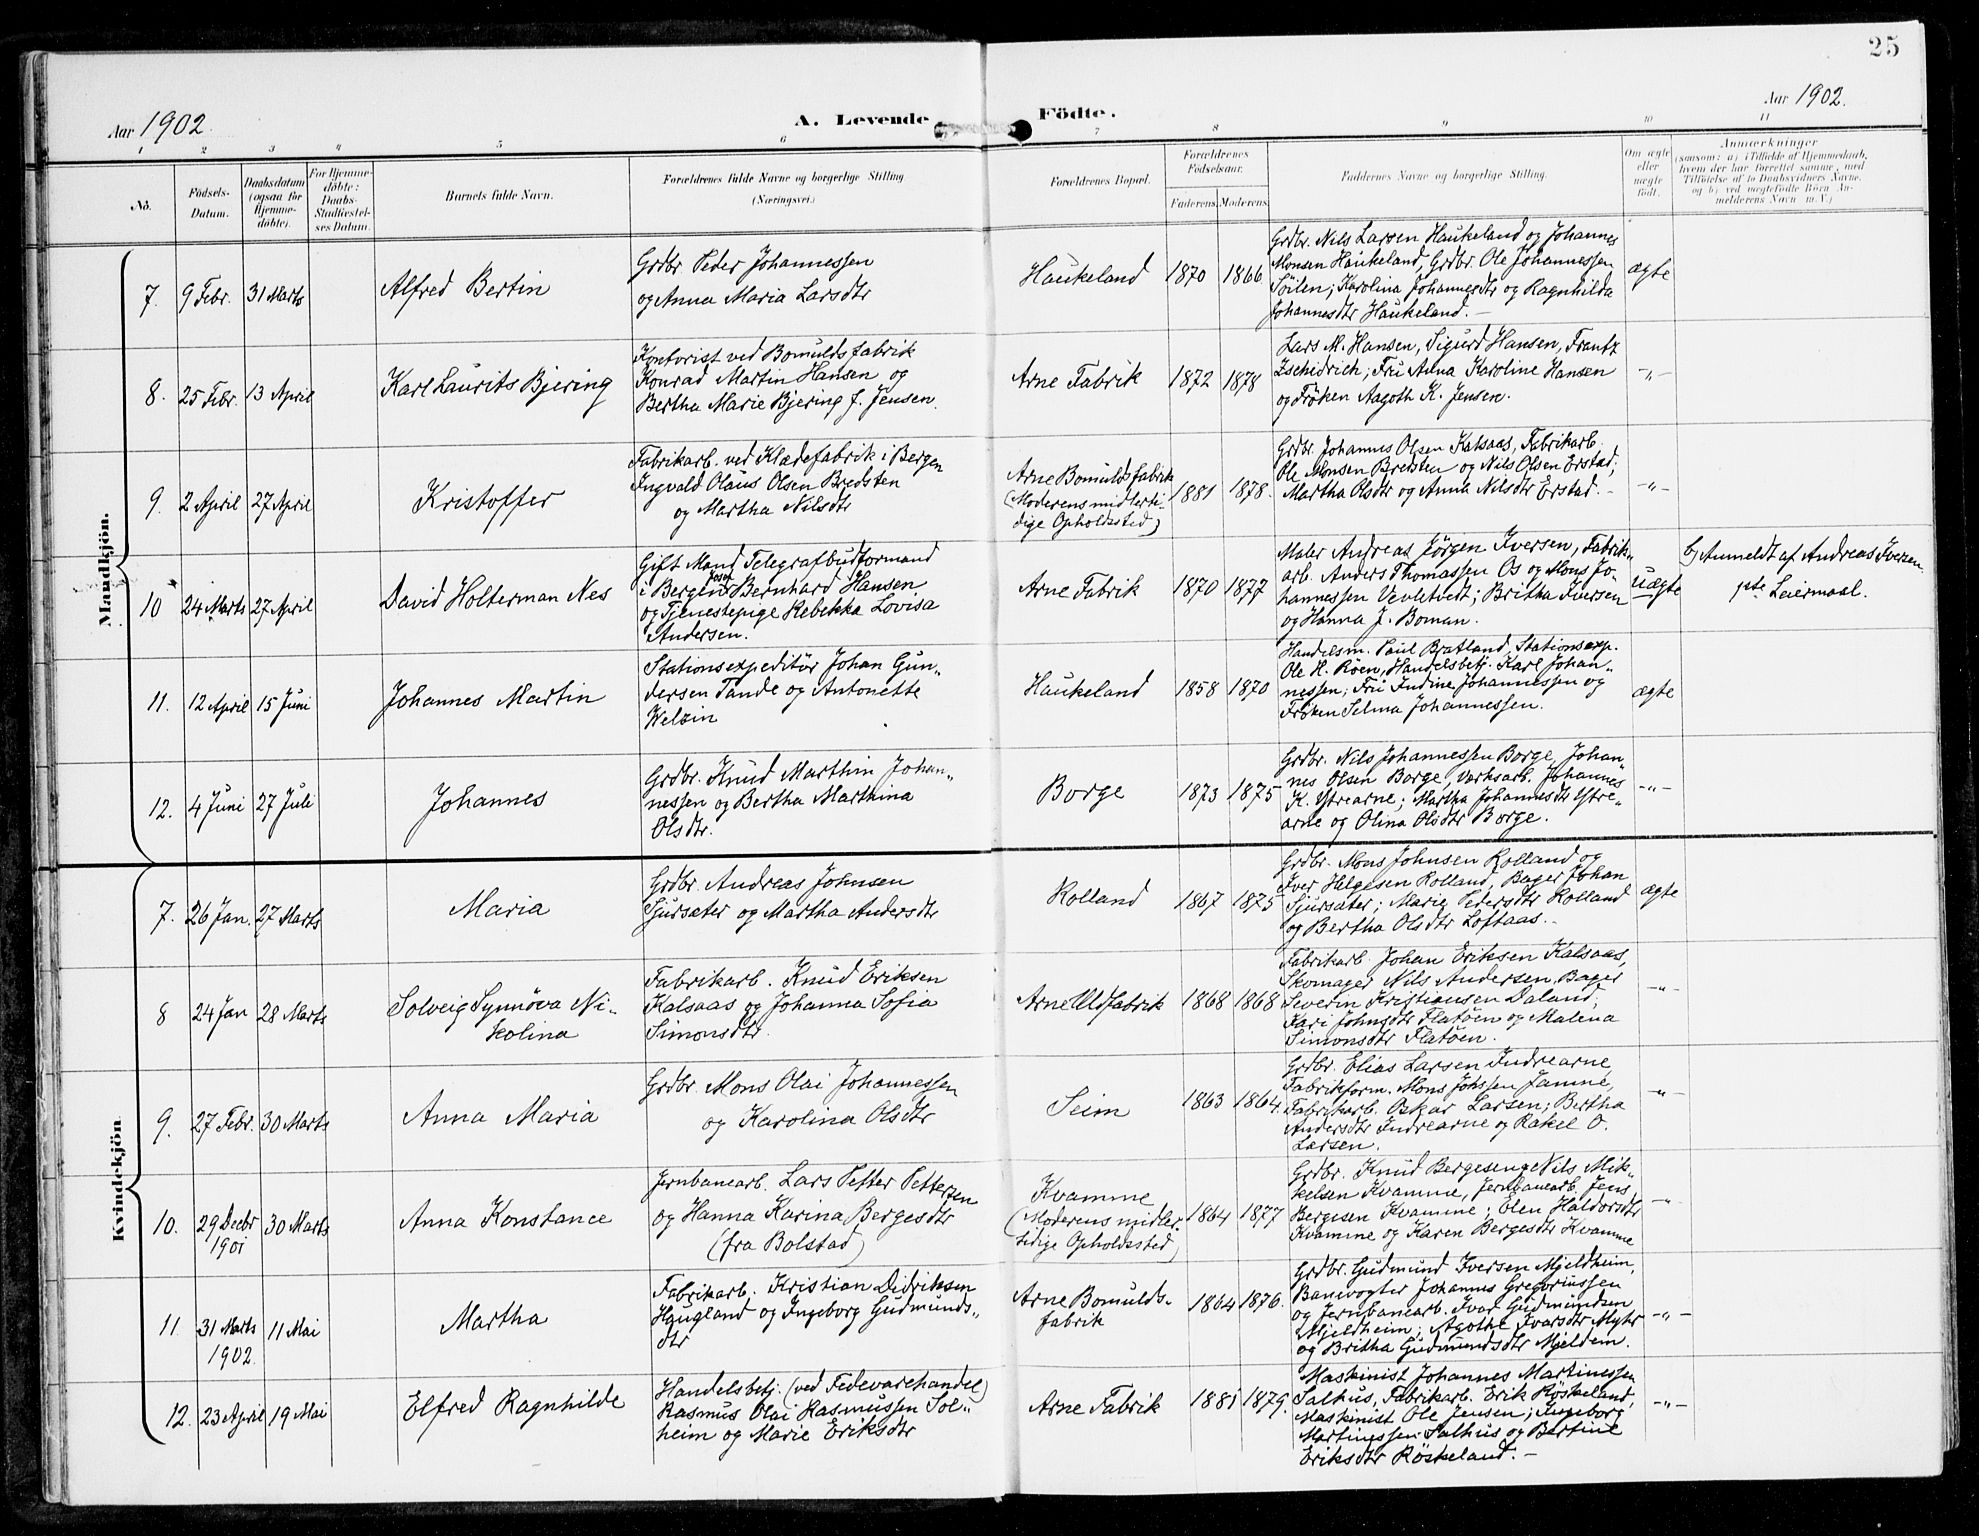 25
Aar 1902.
A. Levende
Födte.
Aar 1902.
1 2 3 4 5 6 7 8 9 10 11
No.
Födsels-
Datum.
Daabsdatum
(ogsaa for
Hjemme-
døbte).
For Hjemme-
døbte:
Daabs-
Stadfæstel-
ses Datum.
Barnets fulde Navn.
Forældrenes fulde Navne og borgerlige Stilling
(Næringsvei.)
Forældrenes Bopæl.
Forældrenes
Födselsaar.
Faderens. Moderens.
Faddernes Navne og borgerlige Stilling.
Om ægte
eller
uægte
født.
Anmærkninger
(saasom: a) i Tilfælde af Hjemmedaab,
hvem der har forrettet samme, med
Tilföielse af to Daabsvidners Navne,
og b) ved uægtefödte Börn An-
melderens Navn m. V.)
Mandkjön.
7. 9 Febr. 31 Marts
Alfred Bertin
Grdbr. Peder Johannessen
og Anna Maria Larsdtr
Haukeland
1870 1866.
Grdbr. Nils Larsen Haukeland og Johannes
Monsen Haukeland, Grdbr. Ole Johannessen
Söilen; Karolina Johannesdtr og Ragnhilda
Johannesdtr Haukeland. -
ægte
8. 25 Febr. 13 April
Karl Laurits Bjering
Kontorist ved Bomuldsfabrik
Konrad Martin Hansen og
Bertha Marie Bjering f. Jensen.
Arne Fabrik
1872 1878
Lars M. Hansen, Sigurd Hansen, Frantz
Zschidrich; Fru Anna Karoline Hansen
og Frøken Aagoth K. Jensen.
-"-
9. 2 April 27 April
Kristoffer
Fabrikarb. ved Klædefabrik i Bergen
Ingvald Olaus Olsen Bredsten
og Martha Nilsdtr
Arne Bomuldsfabrik
(Moderens midlerti-
dige Opholdssted)
1881 1878.
Grdbr. Johannes Olsen Kalsaas, Fabrikarb.
Ole Monsen Bredsten og Nils Olsen Erstad;
Martha Olsdtr og Anna Nilsdtr Erstad. -
-"-
10 24 Marts 27 April
David Holterman Nes
Gift Mand Telegrafbudformand
i Bergen Josef Bernhard Hansen
og Tjenestepige Rebekka Lovisa
Andersen.
Arne Fabrik
1870 1877
Maler Andreas Jörgen Iversen, Fabrik-
arb. Anders Thomassen Os og Mons Jo-
hannessen Vevletvedt; Britha Iversen
og Hanna J. Boman.
uægte
b) Anmeldt af Andreas Iversen.
1ste Leiermaal.
11. 12 April 15 Juni
Johannes Martin
Stationsexpeditør Johan Gun-
dersen Tande og Antonette
Welzin
Haukeland
1858 1870
Handelsm. Paul Bratland, Stationsexp.
Ole H. Röen, Handelsbetj. Karl Johan-
nessen; Fru Indine Johannessen og
Frøken Selma Johannessen.
ægte
12. 4 Juni 27 Juli
Johannes
Grdbr. Knud Marthin Johan-
nessen og Bertha Marthina
Olsdtr.
Borge
1873 1875
Grdbr. Nils Johannessen Borge, Johan-
nes Olsen Borge, Varksarb. Johannes
K. Ytrearne; Martha Johannesdtr Ytre-
arne og Olina Olsdtr Borge.
-"-
Kvindekjön.
7. 26 Jan. 27 Marts
Maria
Grdbr. Andreas Johnsen
Sjursæter og Martha Andersdtr
Rolland
1867 1875
Grdbr. Mons Johnsen Rolland og
Iver Helgesen Rolland, Bager Johan
Sjursæter; Marie Pedersdtr Rolland
og Bertha Olsdtr Loftaas. -
ægte
8 24 Jan 28 Marts
Solveig Synnöva Ni-
kolina
Fabrikarb. Knud Eriksen
Kalsaas og Johanna Sofia
Simonsdtr.
Arne Uldfabrik
1868 1868
Fabrikarb. Johan Eriksen Kalsaas,
Skomager Nils Andersen, Bager
Severin Kristiansen Daland;
Kari Johnsdtr Flatöen og Malena
Simonsdtr Flatöen.
-"-
9. 27 Febr. 30 Marts
Anna Maria
Grdbr. Mons Olai Johannessen
og Karolina Olsdtr
Seim
1863 1864.
Grdbr. Elias Larsen Indrearne,
Fabrikform. Mons Johssen Jamne,
Fabrikarb. Oskar Larsen; Bertha
Andersdtr Indrearne og Rakel O.
Larsen.
-"-
10. 29 Decbr 30 Marts
1901
Anna Konstance
Jernbanearb. Lars Petter Pettersen
og Hanna Karina Bergesdtr
(fra Bolstad)
Kvamme
(Moderens midler-
tidige Opholdssted)
1864 1877
Grdbr. Knud Bergesen og Nils Mik-
kelsen Kvamme, Jernbanearb. Jens
Bergesen Kvamme; Elen Haldorsdtr
Kvamme og Karen Bergesdtr Kvamme
-"-
11. 31 Marts 11 Mai
1902.
Martha
Fabrikarb. Kristian Didriksen
Haugland og Ingeborg Gudmunds-
dtr
Arne Bomulds-
fabrik
1864 1876.
Grdbr. Gudmund Iversen Mjeldheim,
Banevogter Johannes Gregoriussen
og Jernbanearb. Ivar Gudmundsen
Mjeldheim; Agothe Ivarsdtr Myhr
og Britha Gudmundsdtr Mjeldem.
-"-
12. 23 April 19 Mai
Elfred Ragnhilde
Handelsbetj. (ved Fedevarehandel)
Rasmus Olai Rasmussen Sol-
heim og Marie Eriksdtr
Arne Fabrik
1881 1879.
Maskinist Johannes Martinessen
Salhus, Fabrikarb. Erik Röskeland,
Maskinist Ole Jensen; Ingeborg
Martinessen Salhus og Bertine
Eriksdtr Röskeland. -
-"-